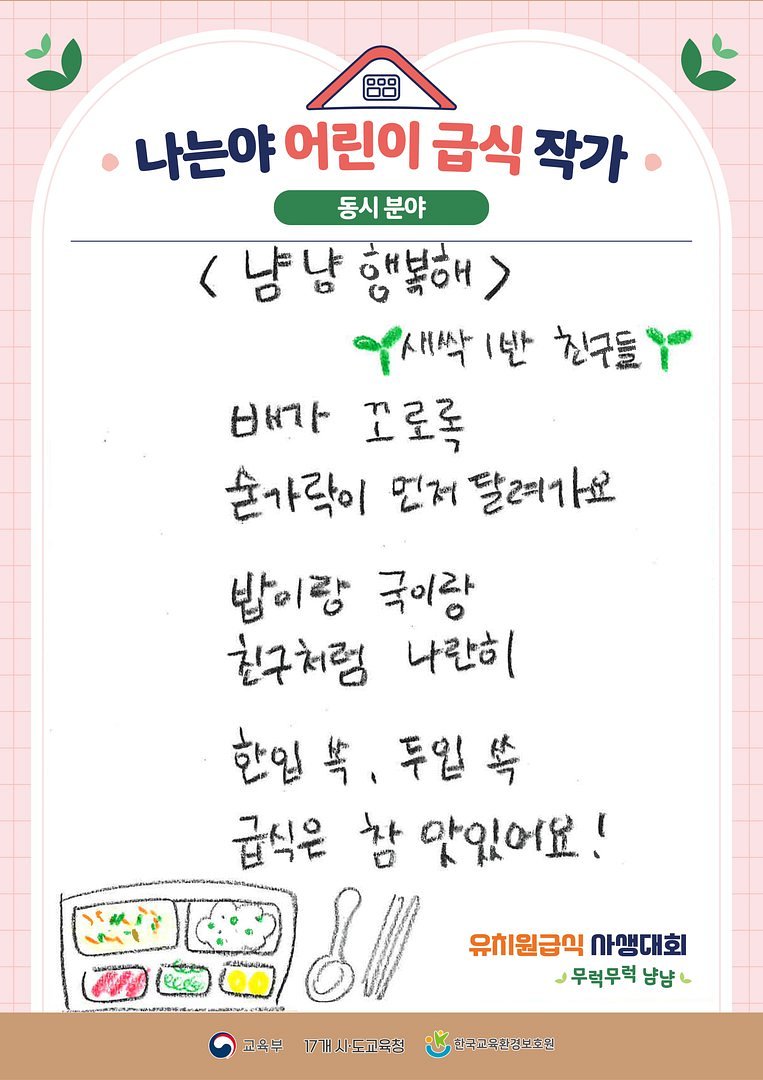 나는야 어린이 급식 작가
동시 분야
< 냠냠 행복해 >
새싹 1반 친구들
배가 꼬로록
숟가락이 먼저 달려가요
밥이랑 국이랑
친구처럼 나란히
한입 쏙, 두입 쏙
급식은 참 맛있어요!
유치원급식 사생대회
무럭무럭 냠냠
교육부 17개 시·도교육청 한국교육환경보호원